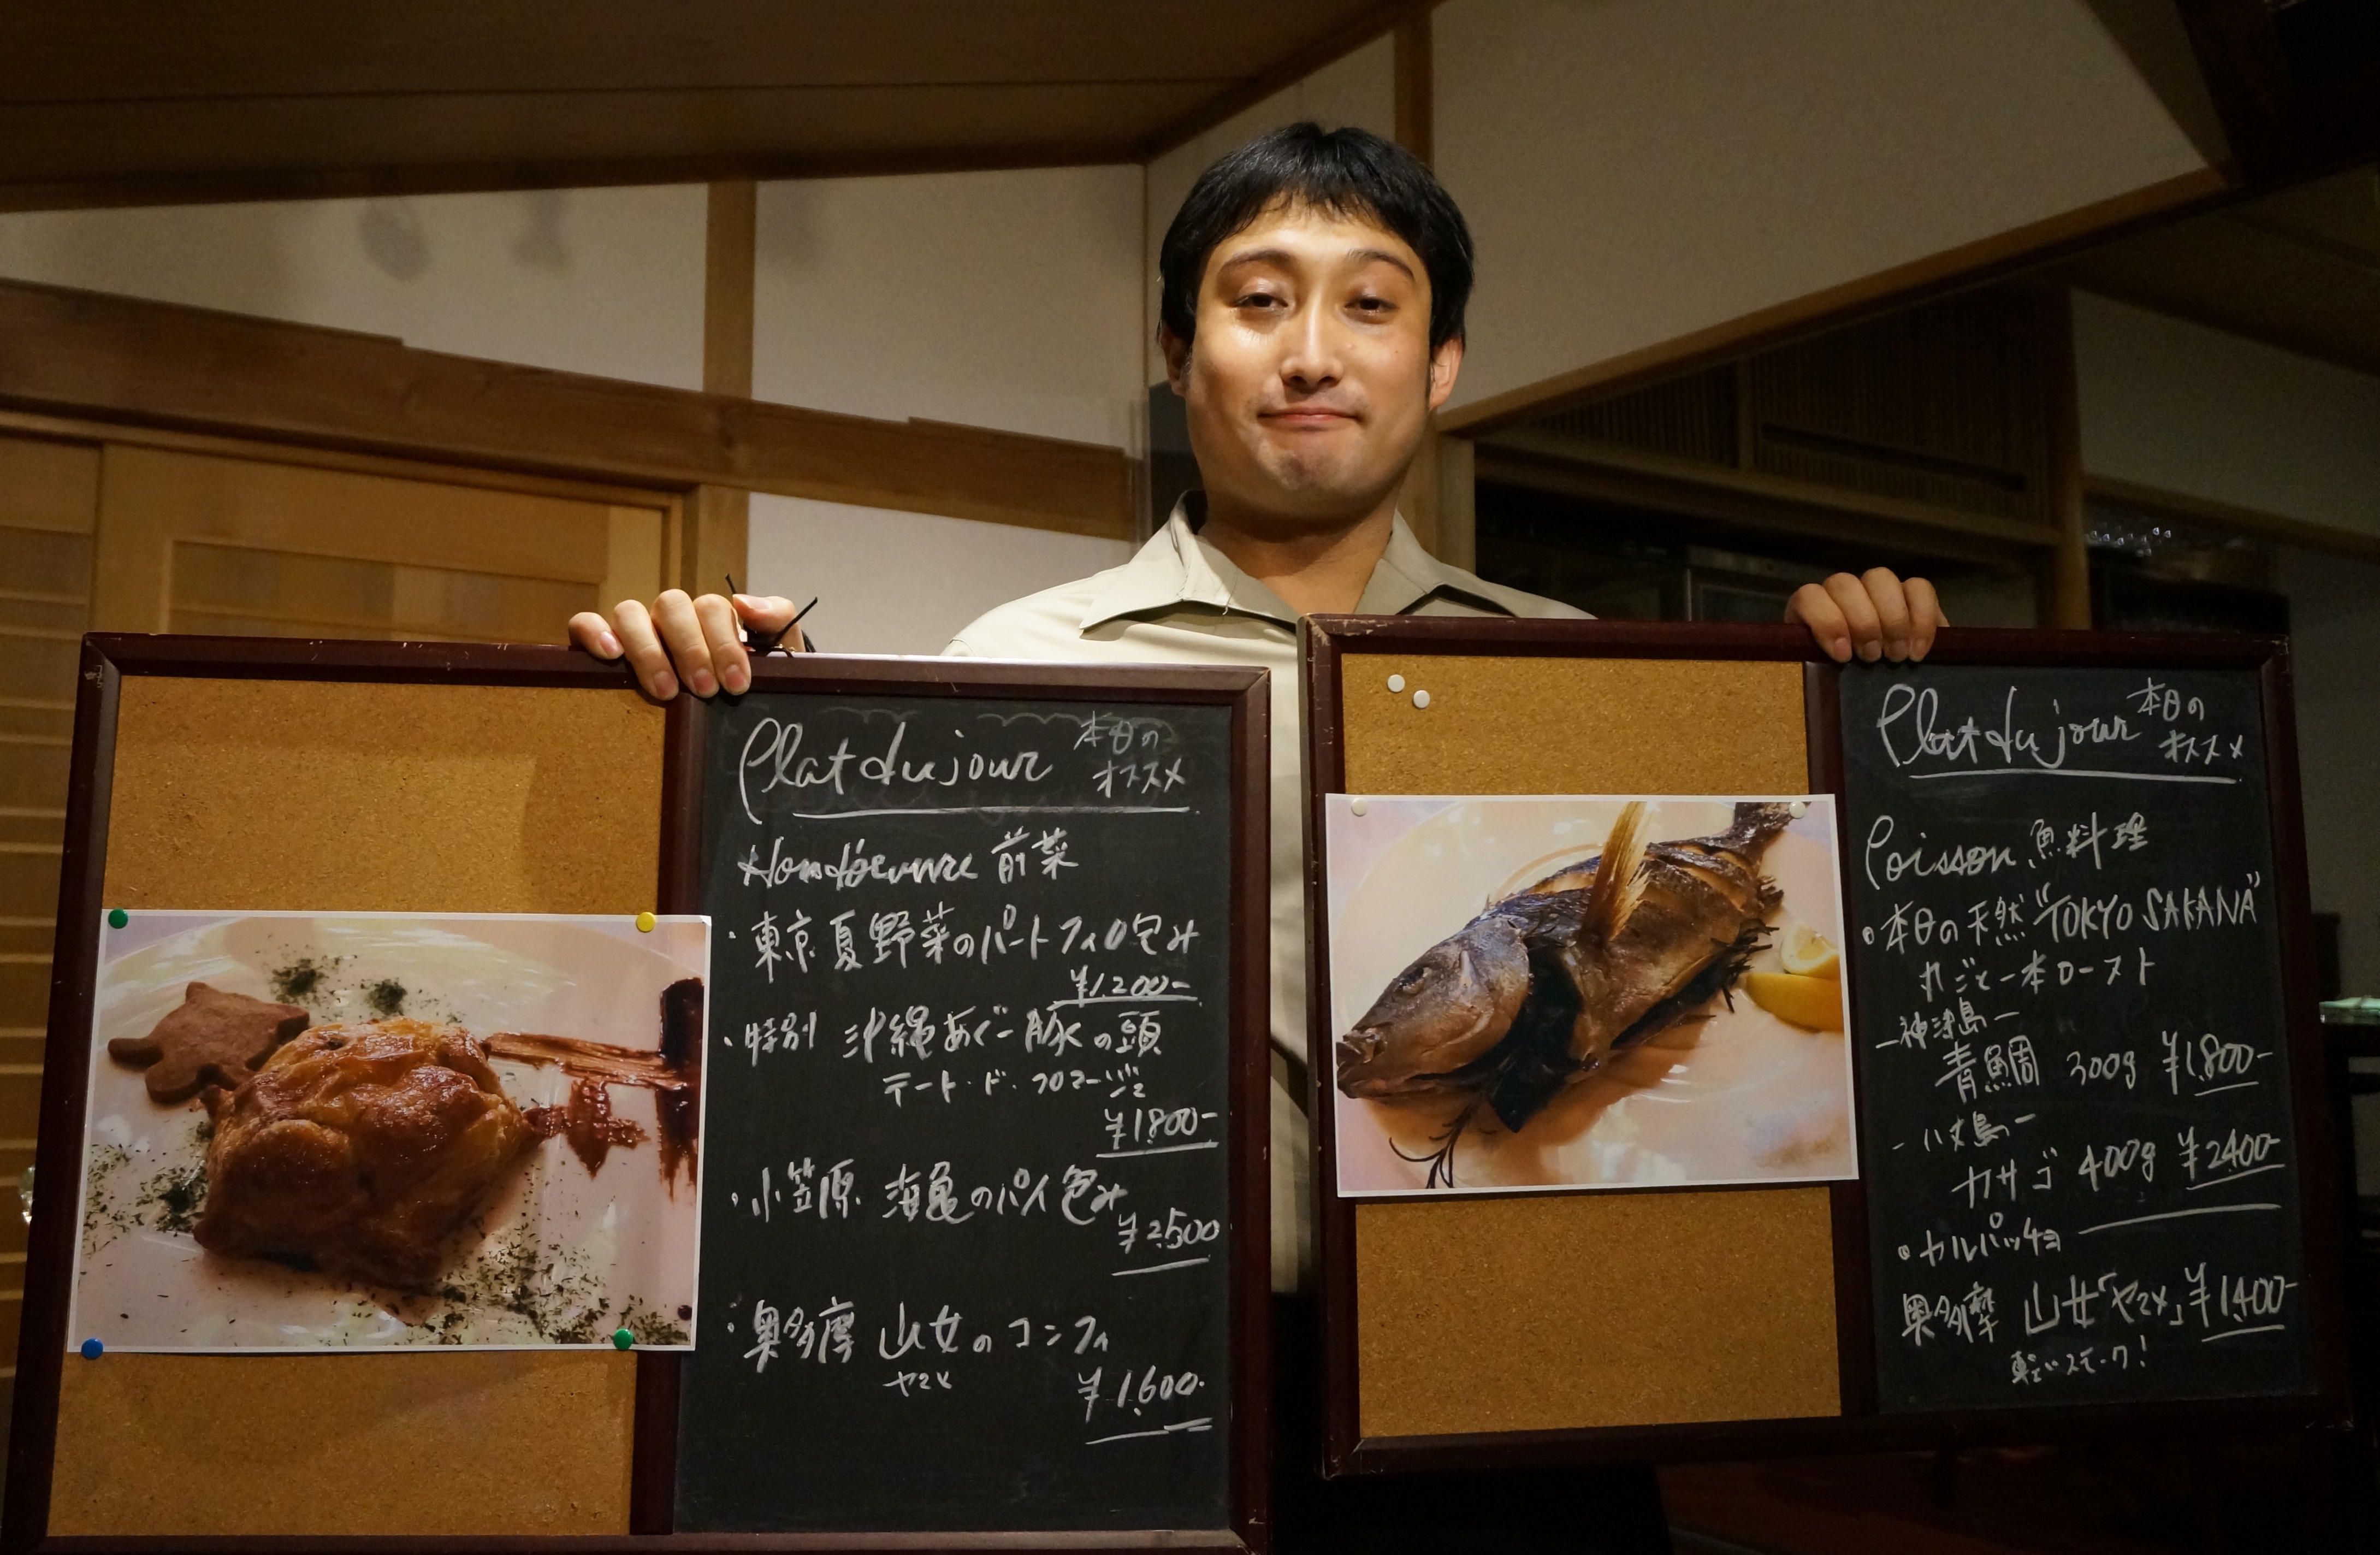 Plat du jour 本日の
オススメ
Hors d'œuvre 前菜
・東京夏野菜のパートフィロ包み
¥1,200-
・特別 沖縄あぐー豚の頭
テート・ド・フロマージュ
¥1,800-
・小笠原 海亀のパイ包み
¥2,500
・奥多摩 山女のコンフィ
ヤマメ
¥1,600-
Plat du jour 本日の
オススメ
Poisson 魚料理
・本日の天然"TOKYO SAKANA"
丸ごと一本ロースト
-神津島-
青鯛 300g ¥1,800-
-八丈島-
カサゴ 400g ¥2400-
・カルパッチョ
奥多摩 山女「ヤマメ」¥1,400-
軽いスモーク!